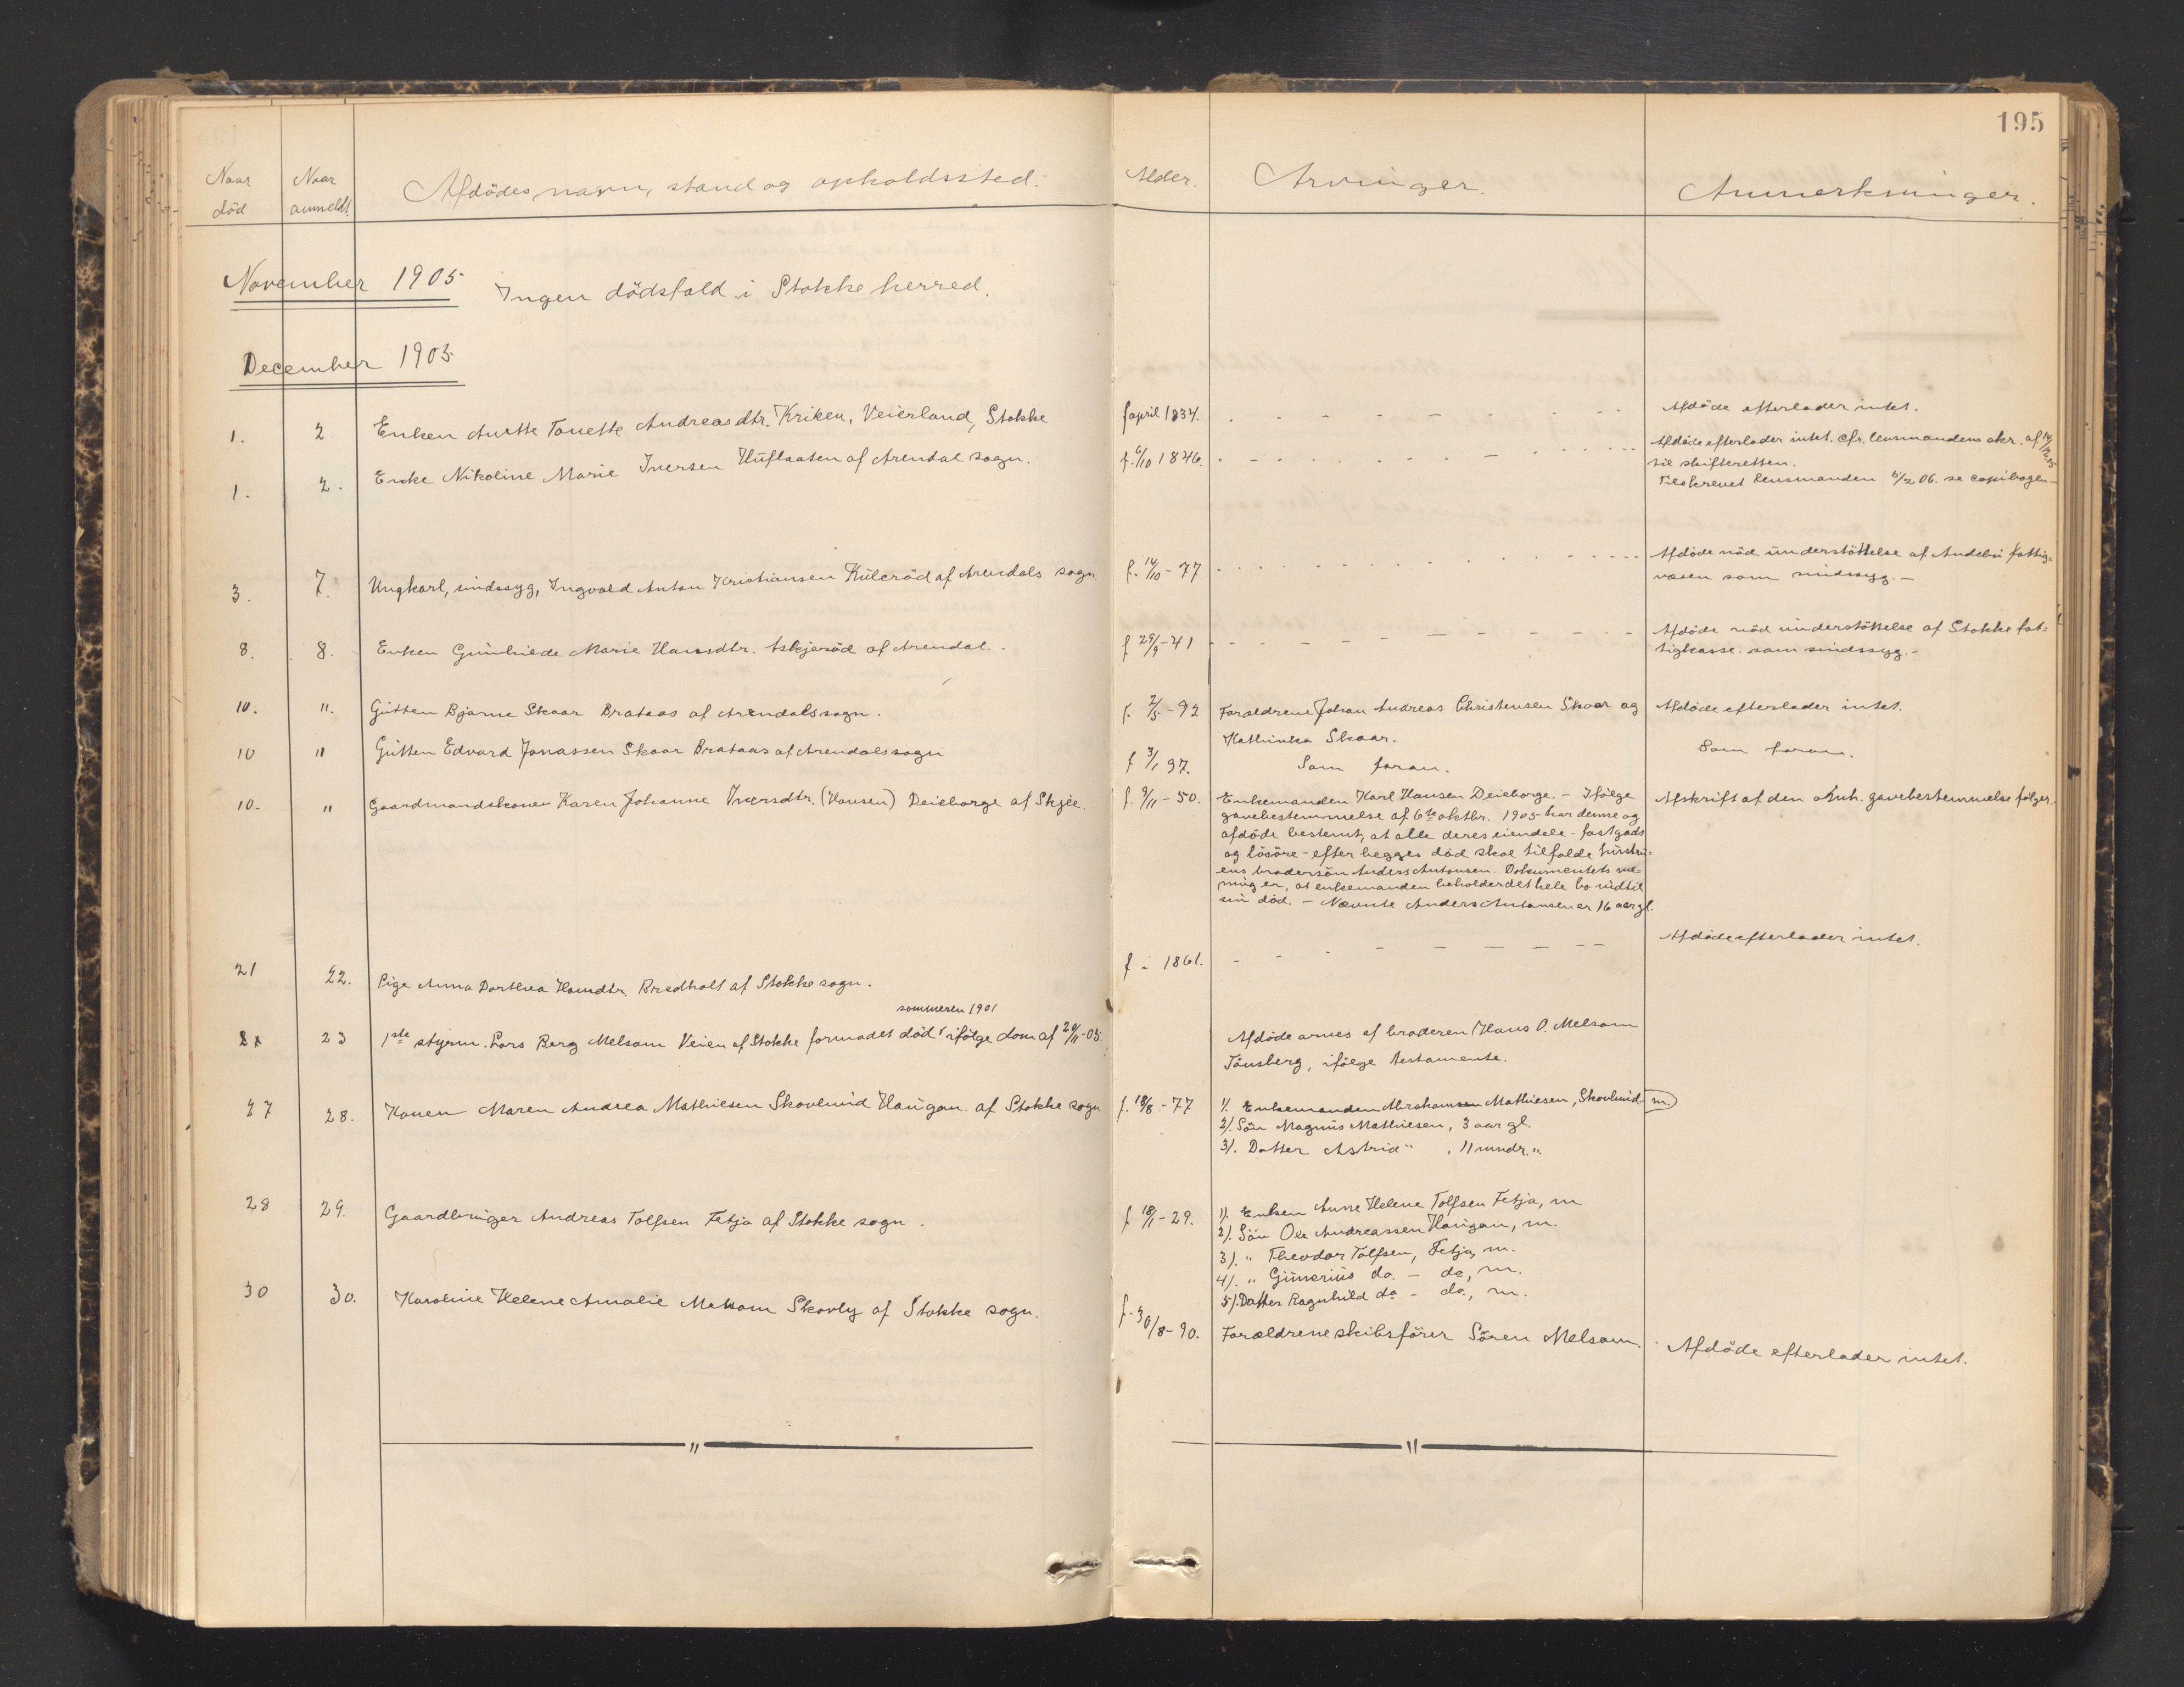 195
Naar død
Naar anmeldt.
Afdødes navn, stand og opholdssted.
Alder.
Arvinger.
Anmerkninger.
November 1905
Ingen dödsfald i Stokke herred.
December 1905
1. 2 Enken Anette Tonette Andreasdtr. Kriken, Veierland, Stokke
f april 1834. Afdöde efterlader intet.
1. 2. Enke Nikoline Marie Iversen Huflaaten af Arendal sogn.
f. 6/10 1846. Afdöde efterlader intet. Cfr. lensmandens skr. af 14/12 05
til skifteretten.
Tilskrevet lensmanden 5/2 06. se copibogen
3. 7. Ungkarl, sindssyg, Ingvald Anton Kristiansen Kuleröd af Arendals sogn
f. 14/10 - 77 Afdöde nöd understöttelse af Andebu fattig-
væsen som sindssyg. -
8. 8. Enken Gunhilde Marie Hansdtr. Askjeröd af Arendal.
f 29/9 - 41 Afdöde nöd understöttelse af Stokke fat-
tigkasse som sindssyg. -
10. ". Gutten Bjarne Skaar Brataas af Arendals sogn.
f. 2/5 - 92 Forældrene Johan Andreas Christensen Skaar og
Kathinka Skaar.
Afdöde efterlader intet.
10 " Gutten Edvard Jonassen Skaar Brataas af Arendals sogn
f 3/1 97. Som foran. Som foran.
10. " Gaardmandskonen Karen Johanne Iversdtr. (Hansen) Deieborge af Skjee.
f. 9/11 - 50. Enkemanden Karl Hansen Deieborge. - Ifölge
gavebestemmelse af 6te oktbr. 1905 har denne og
afdöde bestemt, at alle deres eiendele - fastgods
og lösöre - efter begges död skal tilfalde hustru-
ens brodersön Anders Antonsen. Dokumentets me-
ning er, at enkemanden beholder det hele bo indtil
sin död. - Nævnte Anders Antonsen er 16 aar gl.
Afskrift af den anh. gavebestemmelse fölger.
21 22. Pige Anna Dorthea Hansdtr. Bredholt af Stokke sogn.
f i 1861. Afdöde efterlader intet.
sommeren 1901
23 1ste styrm. Lars Berg Melsom Veien af Stokke formodet död ifölge dom af 20/11 - 05.
Afdöde arves af broderen Hans O. Melsom
Tönsberg, ifölge testamente.
27 28. Konen Maren Andrea Mathiesen Skovlund Haugan af Stokke sogn
f. 18/8 - 77 1). Enkemanden Abrahamsen Mathiesen, Skovlund. m.
2). Sön Magnus Mathiesen, 3 aar gl.
3). Datter Astrid " , 11 mndr. "
28 29. Gaardbruger Andreas Tolfsen Fetja af Stokke sogn.
f 18/1 - 29. 1). Enken Anne Helene Tolfsen Fetja, m
2). Sön Ole Andreassen Haugan, m.
3). " Theodor Tolfsen, Fetja, m.
4). " Gunerius do. - do, m.
5). Datter Ragnhild do - do, m.
30 30. Karoline Helene Amalie Melsom Skovly af Stokke sogn.
f. 30/8 - 90. Forældrene skibsförer Sören Melsom.
Afdöde efterlader intet.